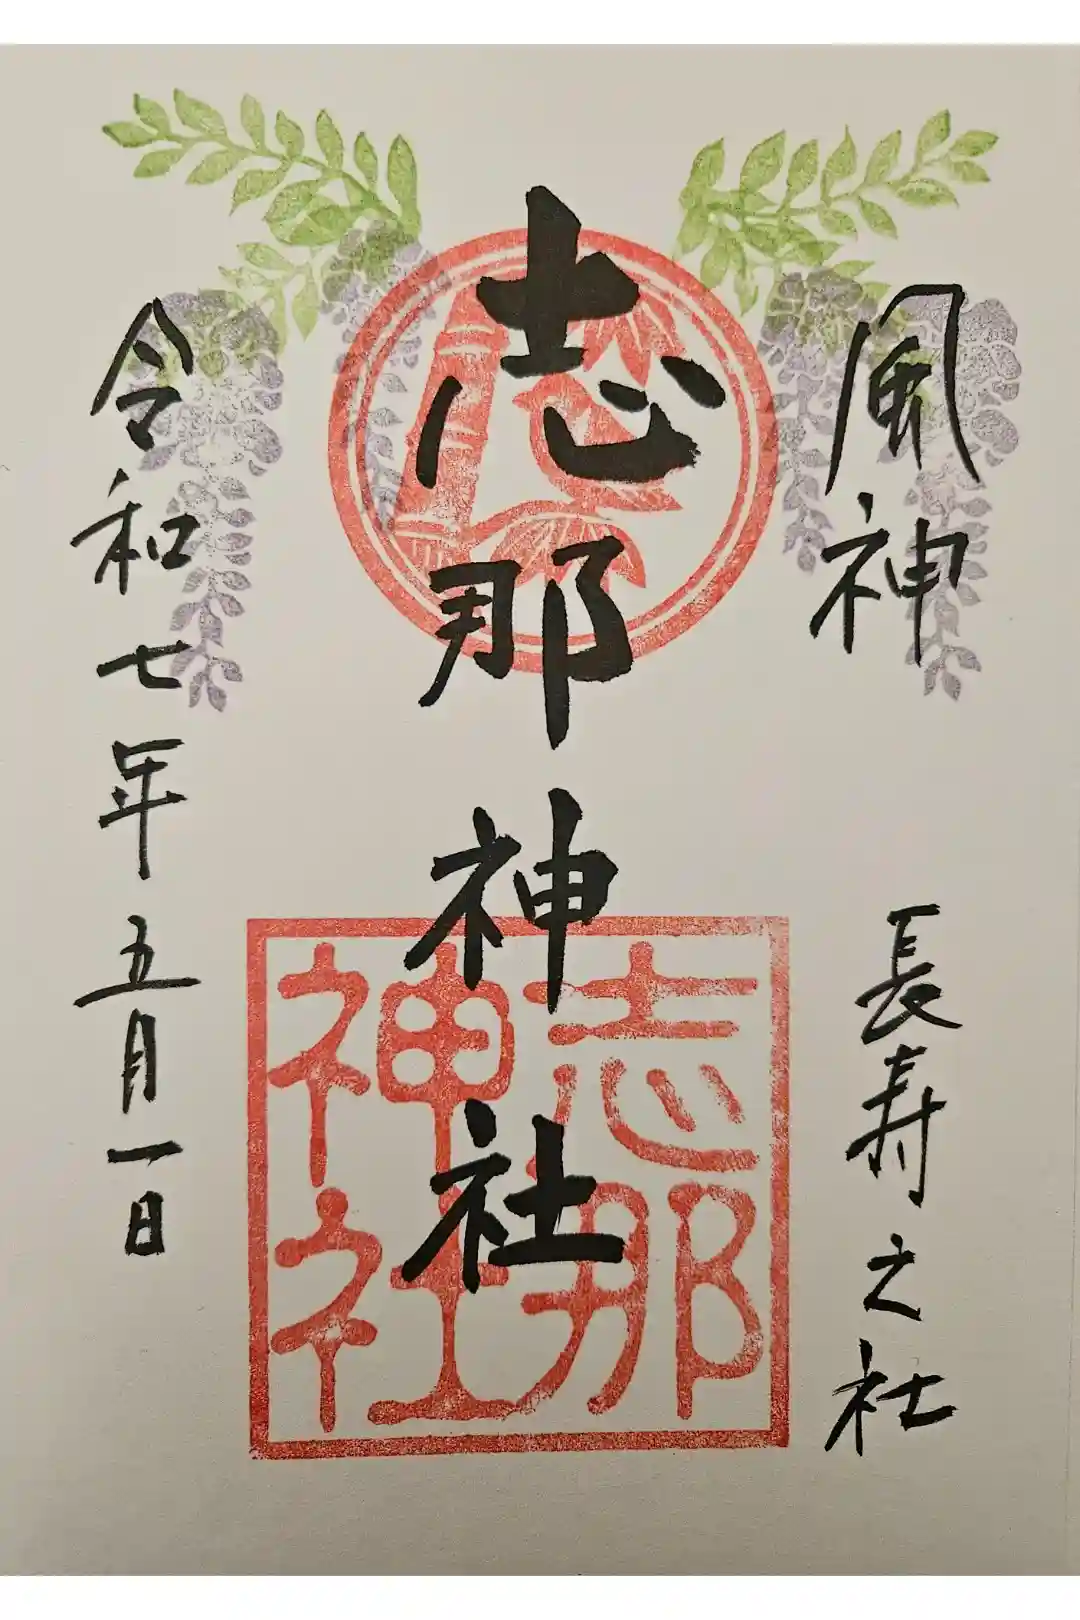 風神
長寿之社
志那神社
志那
神社
令和七年五月一日